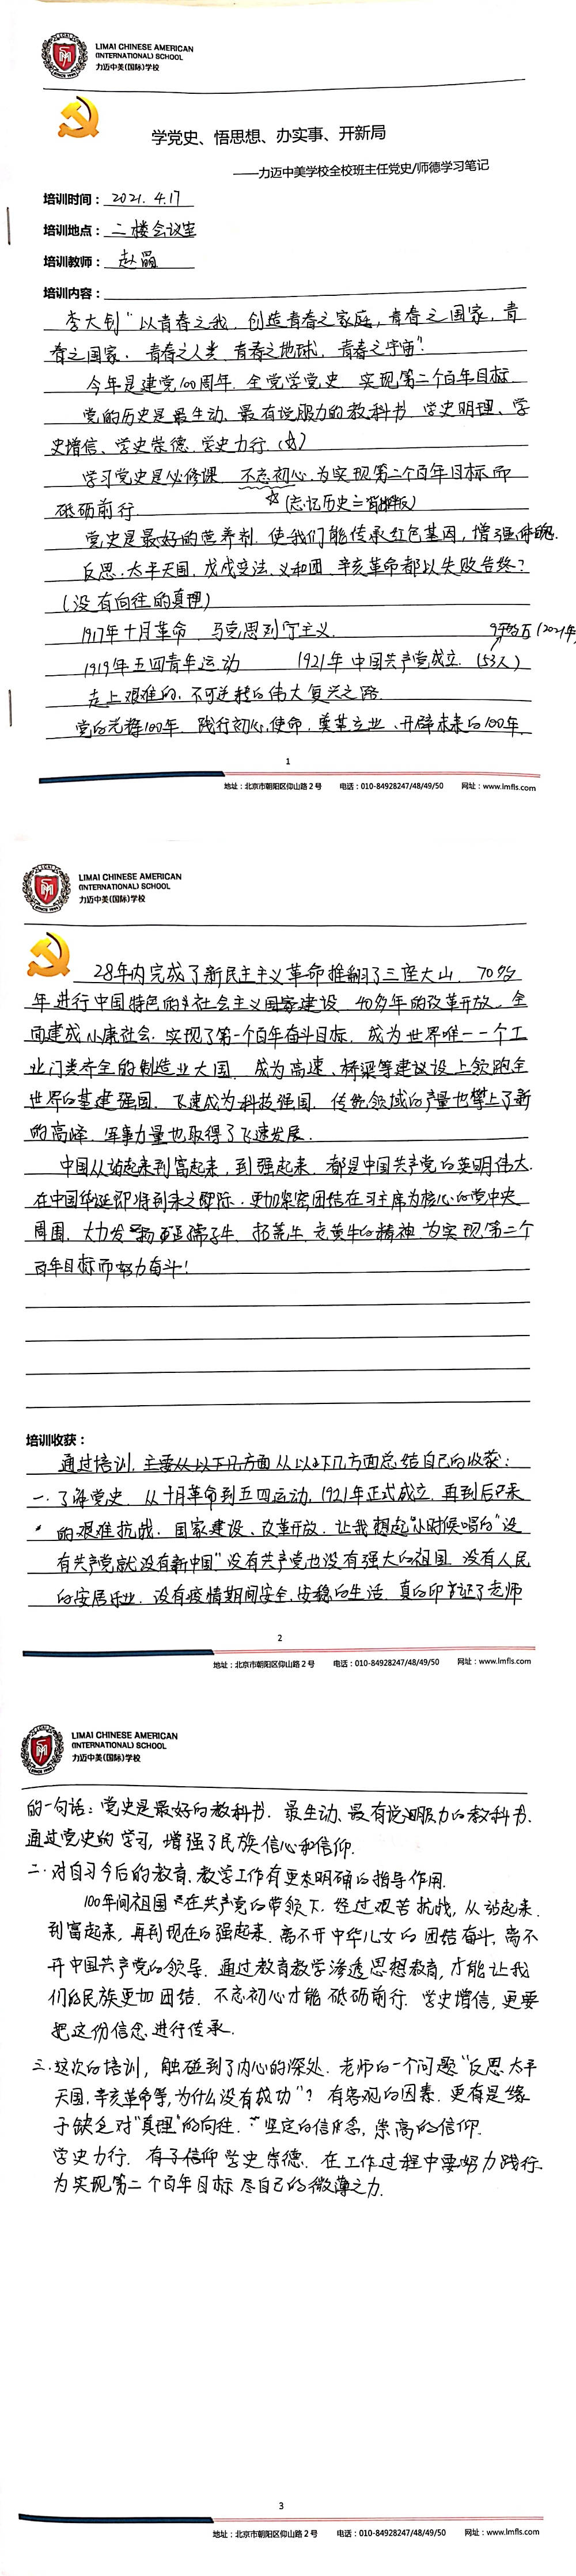 LIMAI CHINESE AMERICAN
(INTERNATIONAL) SCHOOL
力迈中美(国际)学校
学党史、悟思想、办实事、开新局
——力迈中美学校全校班主任党史/师德学习笔记
培训时间：2021. 4.17
培训地点：二楼会议室
培训教师：赵晶
培训内容：
李大钊“以青春之我、创造青春之家庭，青春之国家，青
春之国家、青春之人类、青春之地球、青春之宇宙”.
今年是建党100周年. 全党学党史 实现第二个百年目标.
党的历史是最生动、最有说服力的教科书 学史明理、学
史增信、学史崇德、学史力行.(☆)
学习党史是必修课. 不忘初心.为实现第二个百年目标而
砥砺前行. ☆(忘记历史=背叛)
党史是最好的营养剂. 使我们能传承红色基因，增强体魄.
反思：太平天国，戊戌变法、义和团、辛亥革命都以失败告终?
(没有向往的真理)
1917年十月革命 马克思列宁主义. (2021年
1919年五四青年运动 1921年 中国共产党成立. (53人)
走上艰难的、不可逆转的伟大复兴之路.
党的光辉100年. 践行初心使命，奠基立业、开辟未来的100年.
1
地址：北京市朝阳区仰山路2号 电话：010-84928247/48/49/50 网址：www.lmfls.com
LIMAI CHINESE AMERICAN
(INTERNATIONAL) SCHOOL
力迈中美(国际)学校
28年内完成了新民主主义革命推翻了三座大山. 70多
年进行中国特色的社会主义国家建设 40多年的改革开放. 全
面建成小康社会. 实现了第一个百年奋斗目标. 成为世界唯一一个工
业门类齐全的制造业大国. 成为高速、桥梁等建议设上领跑全
世界的基建强国. 飞速成为科技强国. 传统领域的产量也攀上了新
的高峰. 军事力量也取得了飞速发展.
中国从站起来到富起来，到强起来. 都是中国共产党的英明伟大.
在中国华诞即将到来之际. 更加紧密团结在习主席为核心的党中央
周围. 大力发扬孺子牛、拓荒牛、老黄牛的精神 为实现第二个
百年目标而努力奋斗！
培训收获：
通过培训. 主要从以下几方面从以下几方面总结自己的收获：
一. 了解党史. 从十月革命到五四运动，1921年正式成立. 再到后来
的艰难抗战. 国家建设、改革开放. 让我想起小时候唱的“没
有共产党就没有新中国”没有共产党也没有强大的祖国. 没有人民
的安居乐业. 没有疫情期间安全、安稳的生活. 真的印证了老师
2
地址：北京市朝阳区仰山路2号 电话：010-84928247/48/49/50 网址：www.lmfls.com
LIMAI CHINESE AMERICAN
(INTERNATIONAL) SCHOOL
力迈中美(国际)学校
的一句话：党史是最好的教科书. 最生动、最有说服力的教科书.
通过党史的学习，增强了民族信心和信仰.
二. 对自习今后的教育、教学工作有更本明确的指导作用.
100年间祖国在共产党的带领下. 经过艰苦抗战，从站起来.
到富起来，再到现在的强起来. 离不开中华儿女的团结奋斗，离不
开中国共产党的领导. 通过教育教学渗透思想教育，才能让我
们的民族更加团结. 不忘初心才能砥砺前行. 学史增信，更要
把这份信念进行传承.
三. 这次的培训，触碰到了内心的深处. 老师的一个问题“反思太平
天国，辛亥革命等，为什么没有成功”? 有客观的因素. 更有是缘
于缺乏对“真理”的向往. 坚定的信念，崇高的信仰.
学史力行. 有了信仰 学史崇德. 在工作过程中要努力践行.
为实现第二个百年目标 尽自己的微薄之力.
3
地址：北京市朝阳区仰山路2号 电话：010-84928247/48/49/50 网址：www.lmfls.com